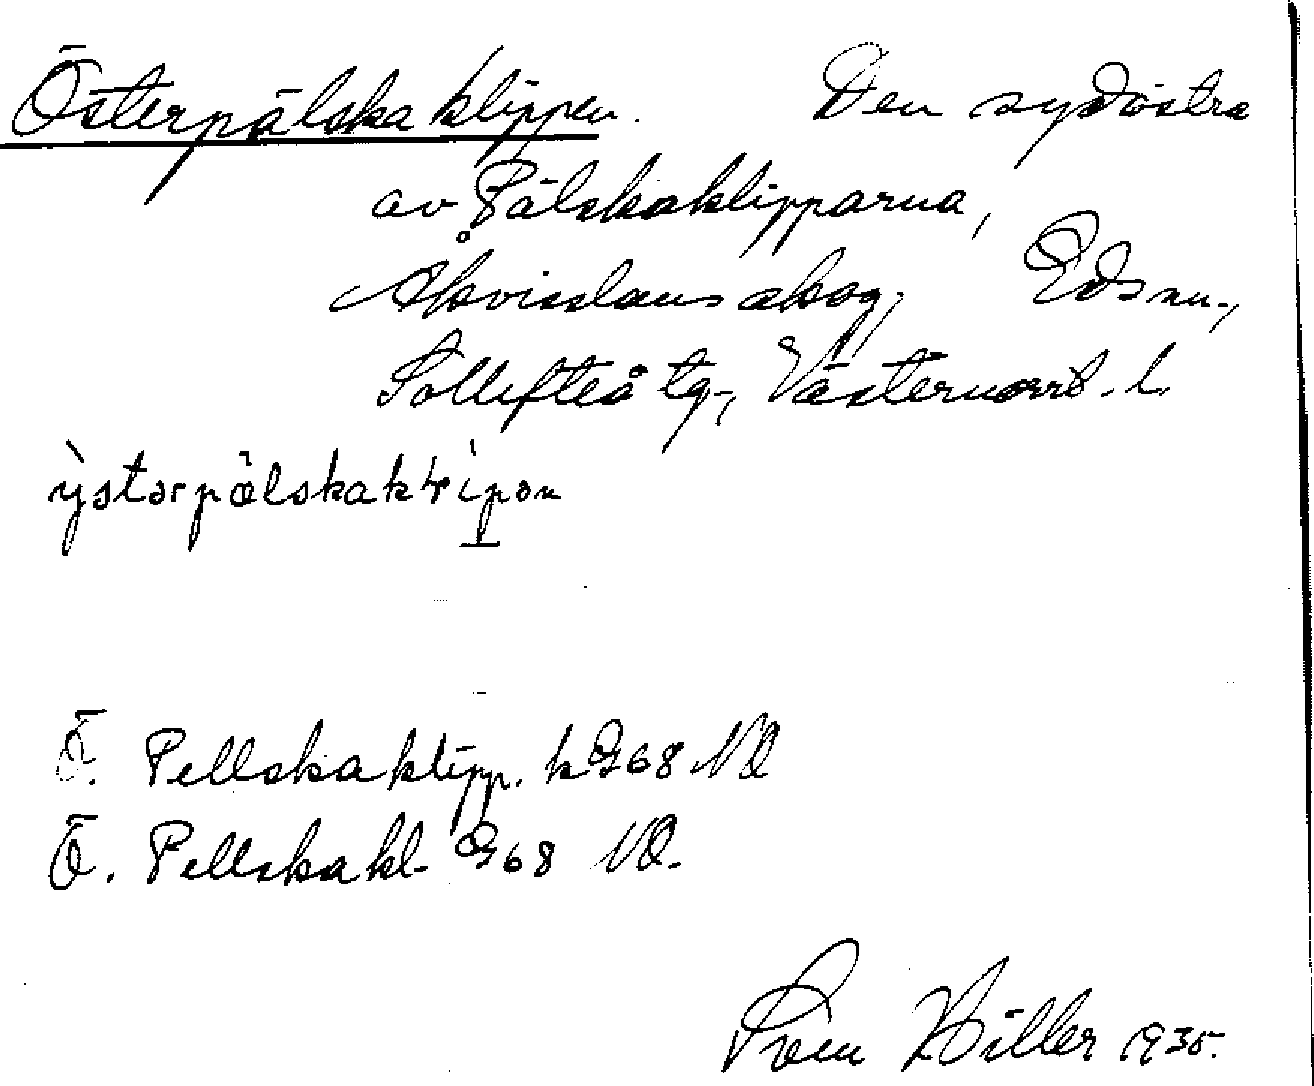 Österpälskaklippen. Den sydöstra
av Pälskaklipparna,
Åkvisslans skog, Eds sn.,
Sollefteå tg., Västernorrl. l.
ỳstərpälskak
Ö. Pellskaklipp. k G68 NO
Ö. Pellskakl. G68 NO.
Sven Hiller 1935.